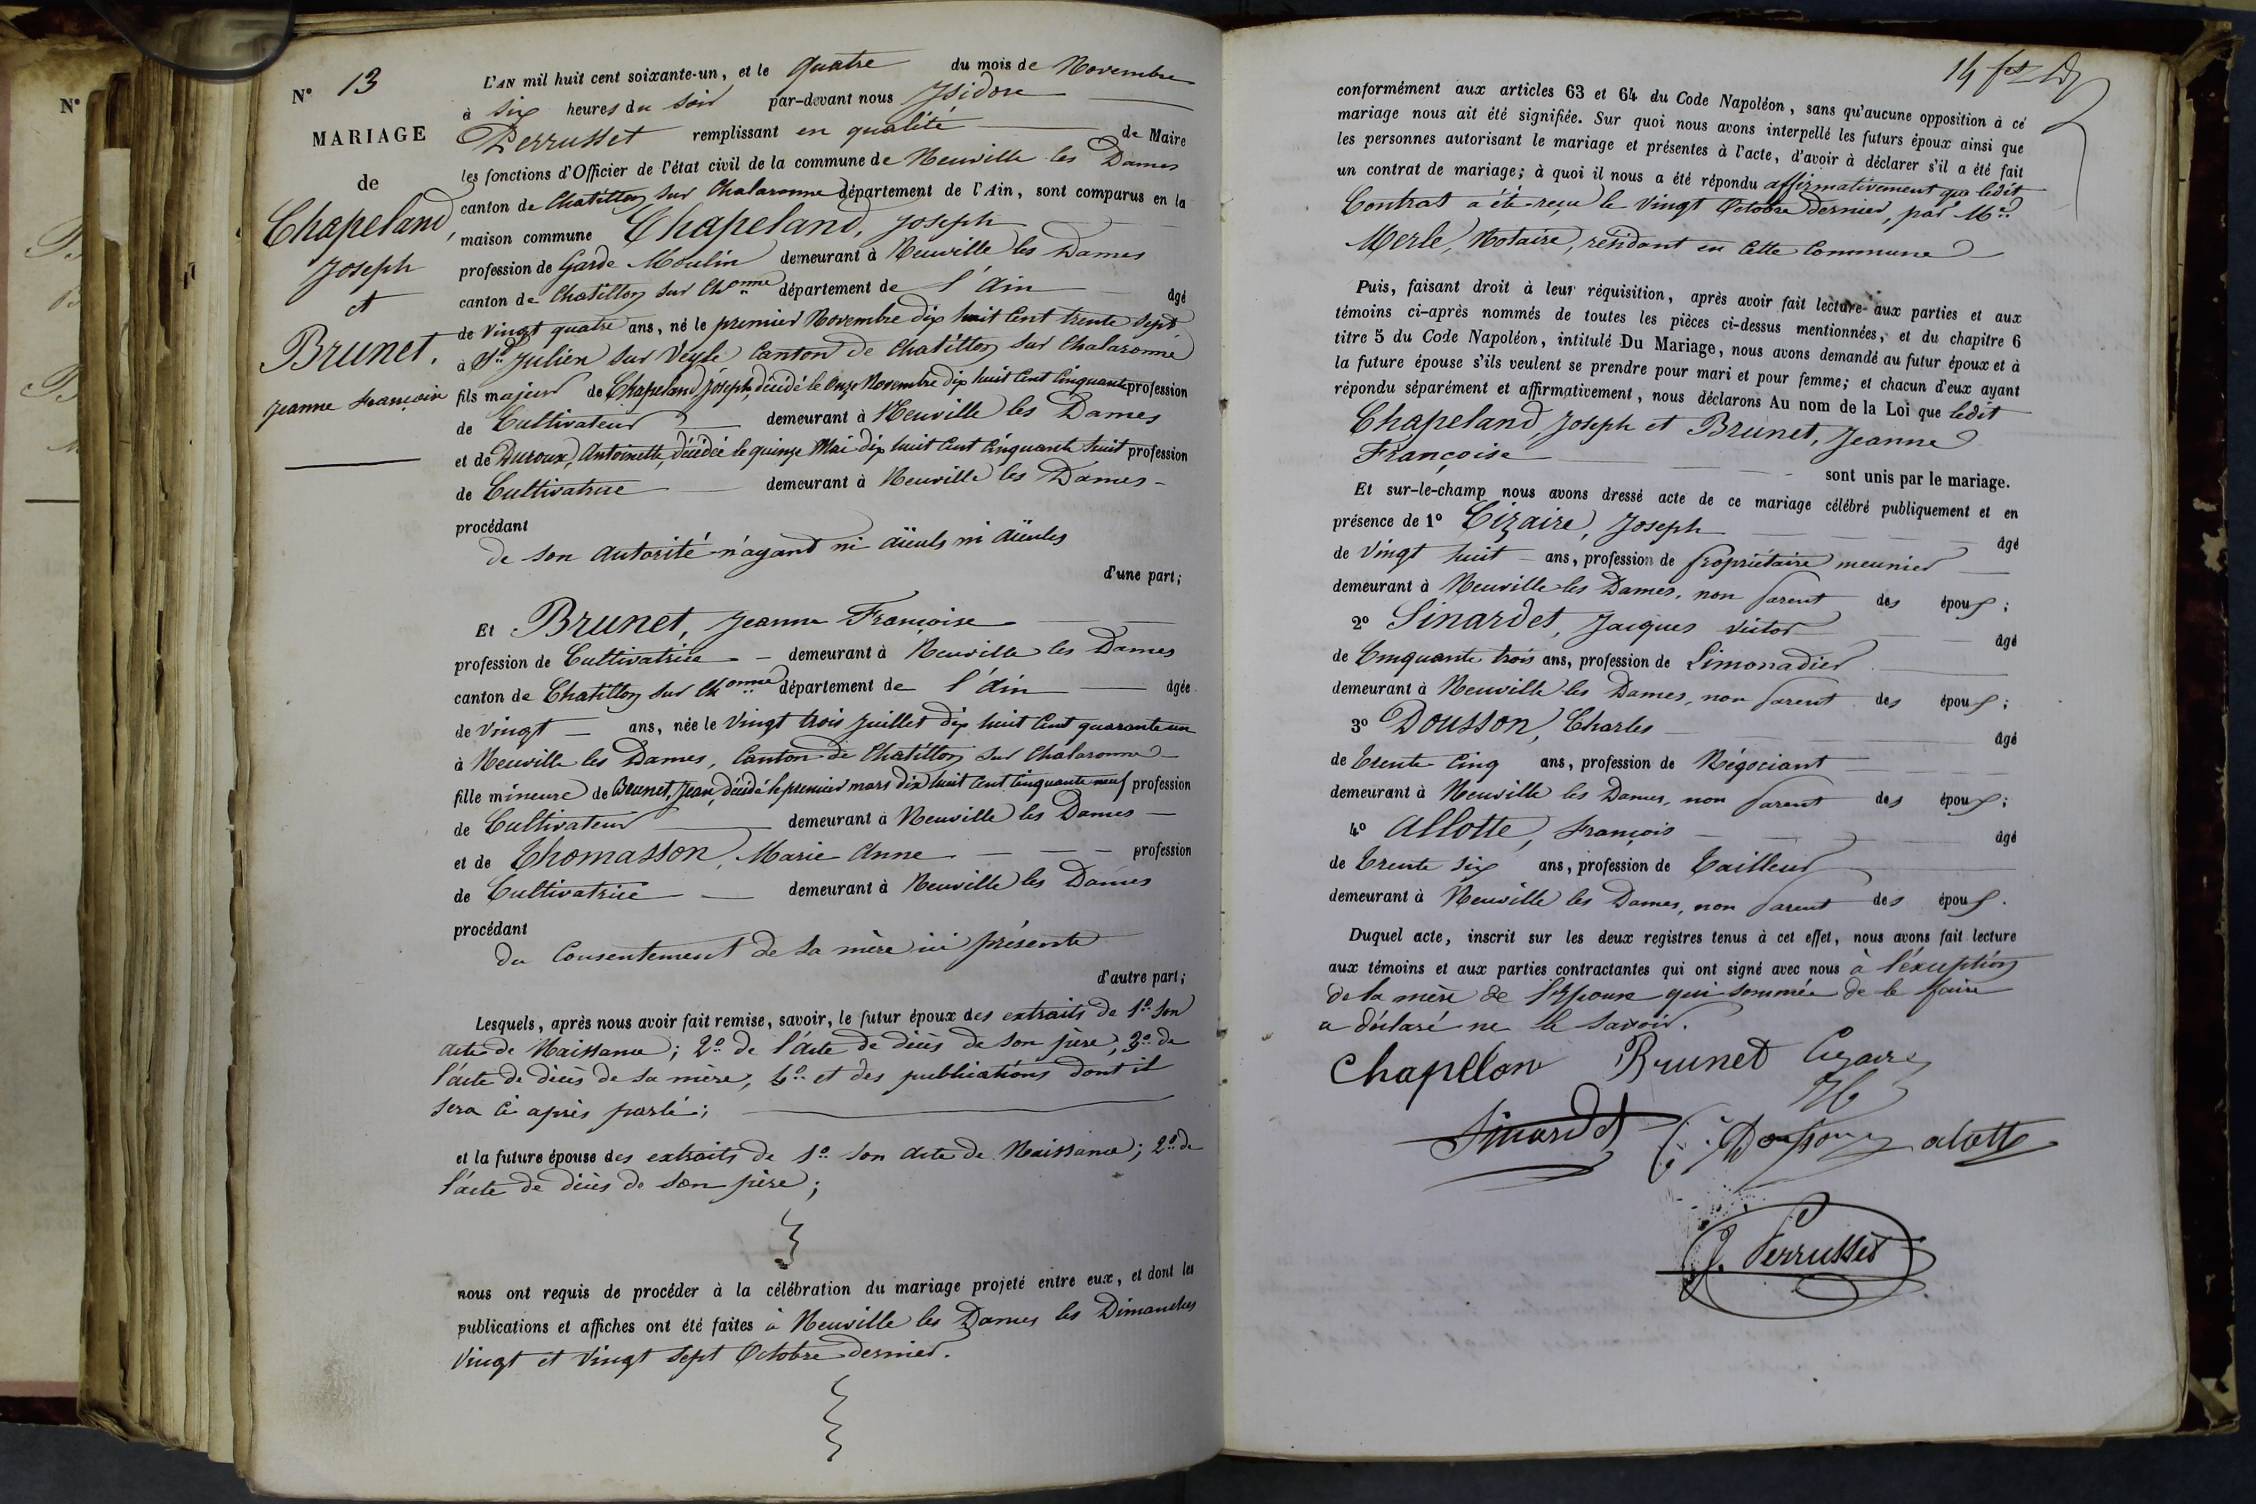 N°
N° 13
MARIAGE
de
Chapeland,
Joseph
et
Brunet,
Jeanne Françoise
L'AN mil huit cent soixante-un, et le quatre du mois de Novembre
à six heures du soir par-devant nous Isidore
Perrusset remplissant en qualité de Maire
les fonctions d'Officier de l'état civil de la commune de Neuville les Dames
canton de Chatillon sur Chalaronne département de l'Ain, sont comparus en la
maison commune Chapeland, Joseph
profession de Garde Moulin demeurant à Neuville les Dames
canton de Chatillon sur Chonne département de l'Ain âgé
de Vingt quatre ans, né le premier Novembre dix huit Cent trente sept
à St Julien sur Veyle Canton de Chatillon sur Chalaronne
fils majeur de Chapeland Joseph, décédé le onze Novembre dix huit Cent Cinquante profession
de Cultivateur demeurant à Neuville les Dames
et de Duroux, Antoinette, décédée le quinze Mai dix huit Cent Cinquante huit profession
de Cultivatrice demeurant à Neuville les Dames
procédant
de son autorité n'ayant ni aïeuls ni aïeules
d'une part;
Et Brunet, Jeanne Françoise
profession de Cultivatrice demeurant à Neuville les Dames
canton de Chatillon sur Chonne département de l'Ain âgée
de Vingt ans, née le Vingt trois Juillet dix huit Cent quarante un
à Neuville les Dames, Canton de Chatillon sur Chalaronne
fille mineure de Brunet, Jean, décédé le premier mars dix huit Cent Cinquante neuf profession
de Cultivateur demeurant à Neuville les Dames
et de Thomasson, Marie Anne profession
de Cultivatrice demeurant à Neuville les Dames
procédant
du Consentement de sa mère ici présente
d'autre part;
Lesquels, après nous avoir fait remise, savoir, le futur époux des extraits de 1° son
acte de Naissance; 2° de l'acte de décès de son père, 3° de
l'acte de décès de sa mère, 4° et des publications dont il
sera ci après parlé;
et la future épouse des extraits de 1° son acte de Naissance; 2° de
l'acte de décès de son père;
nous ont requis de procéder à la célébration du mariage projeté entre eux, et dont les
publications et affiches ont été faites à Neuville les Dames les Dimanches
Vingt et Vingt sept Octobre dernier.
14
conformément aux articles 63 et 64 du Code Napoléon, sans qu'aucune opposition à ce
mariage nous ait été signifiée. Sur quoi nous avons interpellé les futurs époux ainsi que
les personnes autorisant le mariage et présentes à l'acte, d'avoir à déclarer s'il a été fait
un contrat de mariage; à quoi il nous a été répondu affirmativement que ledit
Contrat a été reçu le Vingt Octobre dernier, par Me
Merle, Notaire, résidant en cette Commune
Puis, faisant droit à leur réquisition, après avoir fait lecture aux parties et aux
témoins ci-après nommés de toutes les pièces ci-dessus mentionnées, et du chapitre 6
titre 5 du Code Napoléon, intitulé Du Mariage, nous avons demandé au futur époux et à
la future épouse s'ils veulent se prendre pour mari et pour femme; et chacun d'eux ayant
répondu séparément et affirmativement, nous déclarons Au nom de la Loi que ledit
Chapeland, Joseph et Brunet, Jeanne
Françoise
sont unis par le mariage.
Et sur-le-champ nous avons dressé acte de ce mariage célébré publiquement et en
présence de 1° Cizaire, Joseph âgé
de Vingt huit ans, profession de propriétaire meunier
demeurant à Neuville les Dames, non parent des époux;
2° Sinardet, Jacques Victor âgé
de Cinquante trois ans, profession de Limonadier
demeurant à Neuville les Dames, non parent des époux;
3° Dousson, Charles âgé
de trente Cinq ans, profession de Négociant
demeurant à Neuville les Dames, non parent des époux;
4° Allotte, François âgé
de trente six ans, profession de Tailleur
demeurant à Neuville les Dames, non parent des époux.
Duquel acte, inscrit sur les deux registres tenus à cet effet, nous avons fait lecture
aux témoins et aux parties contractantes qui ont signé avec nous à l'exception
de la mère de l'Epouse qui sommée de le faire
a déclaré ne le savoir.
Chapelon Brunet
Sinardet Dousson alotte
J. Perrusset